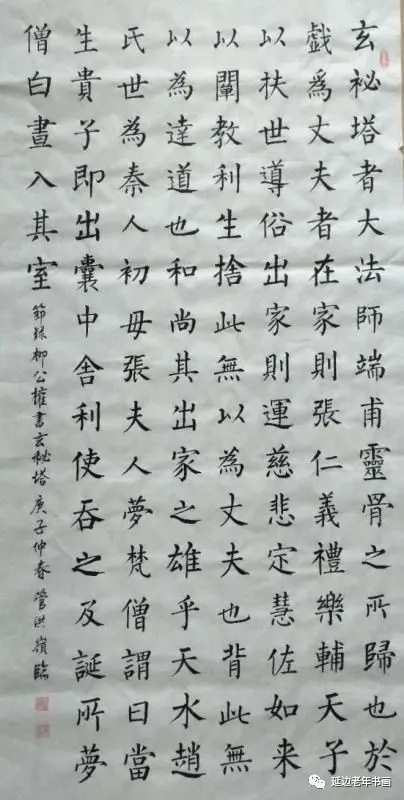 玄祕塔者大法師端甫靈骨之所歸也於
戯爲丈夫者在家則張仁義禮樂輔天子
以扶世導俗出家則運慈悲定慧佐如来
以闡教利生捨此無以為丈夫也背此無
以為達道也和尚其出家之雄乎天水趙
氏世為秦人初母張夫人夢梵僧謂曰當
生貴子即出囊中舍利使吞之及誕所夢
僧白晝入其室
節録柳公權書玄秘塔庚子仲春管洪嶺臨
延边老年书画